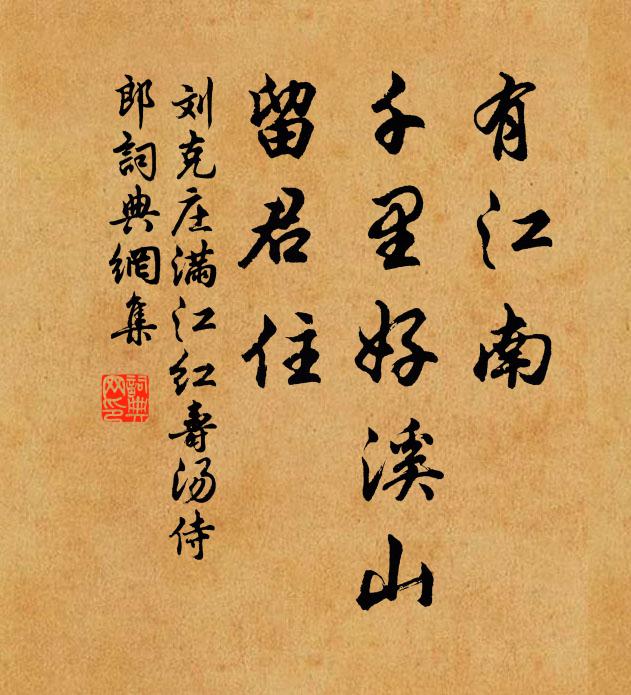 有江南
千里好溪山
留君住
刘克庄满江红寿汤侍
郎词典网集
词典网印